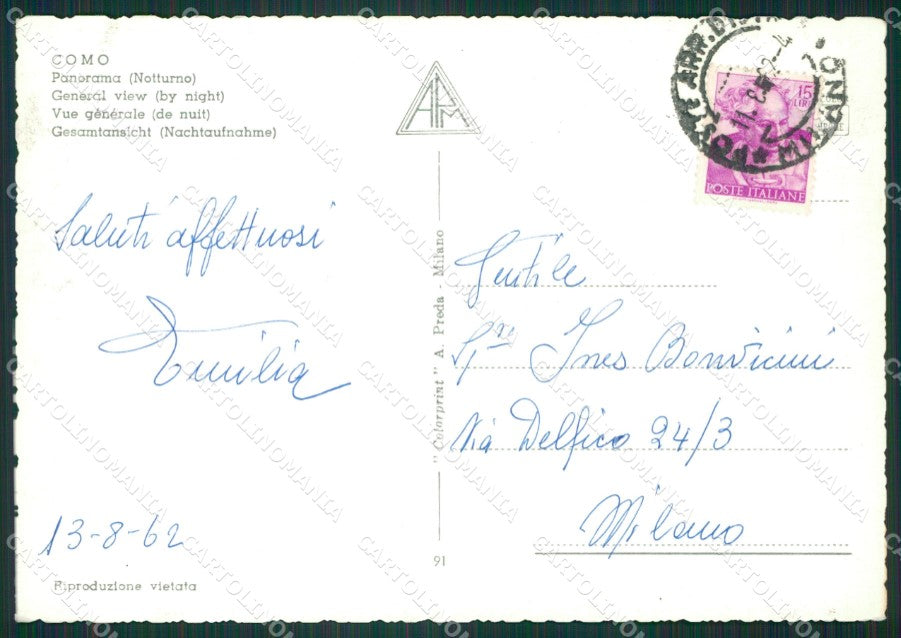 COMO
Panorama (Notturno)
General view (by night)
Vue générale (de nuit)
Gesamtansicht (Nachtaufnahme)
Saluti affettuosi
Emilia
13-8-62
Riproduzione vietata
APM
"Colorprint" A. Preda - Milano
91
15
LIRE
POSTE ITALIANE
POSTE ARR.
MILANO
Gentile
Sigra Ines Bonvicini
Via Delfico 24/3
Milano
CARTOLINOMANIA